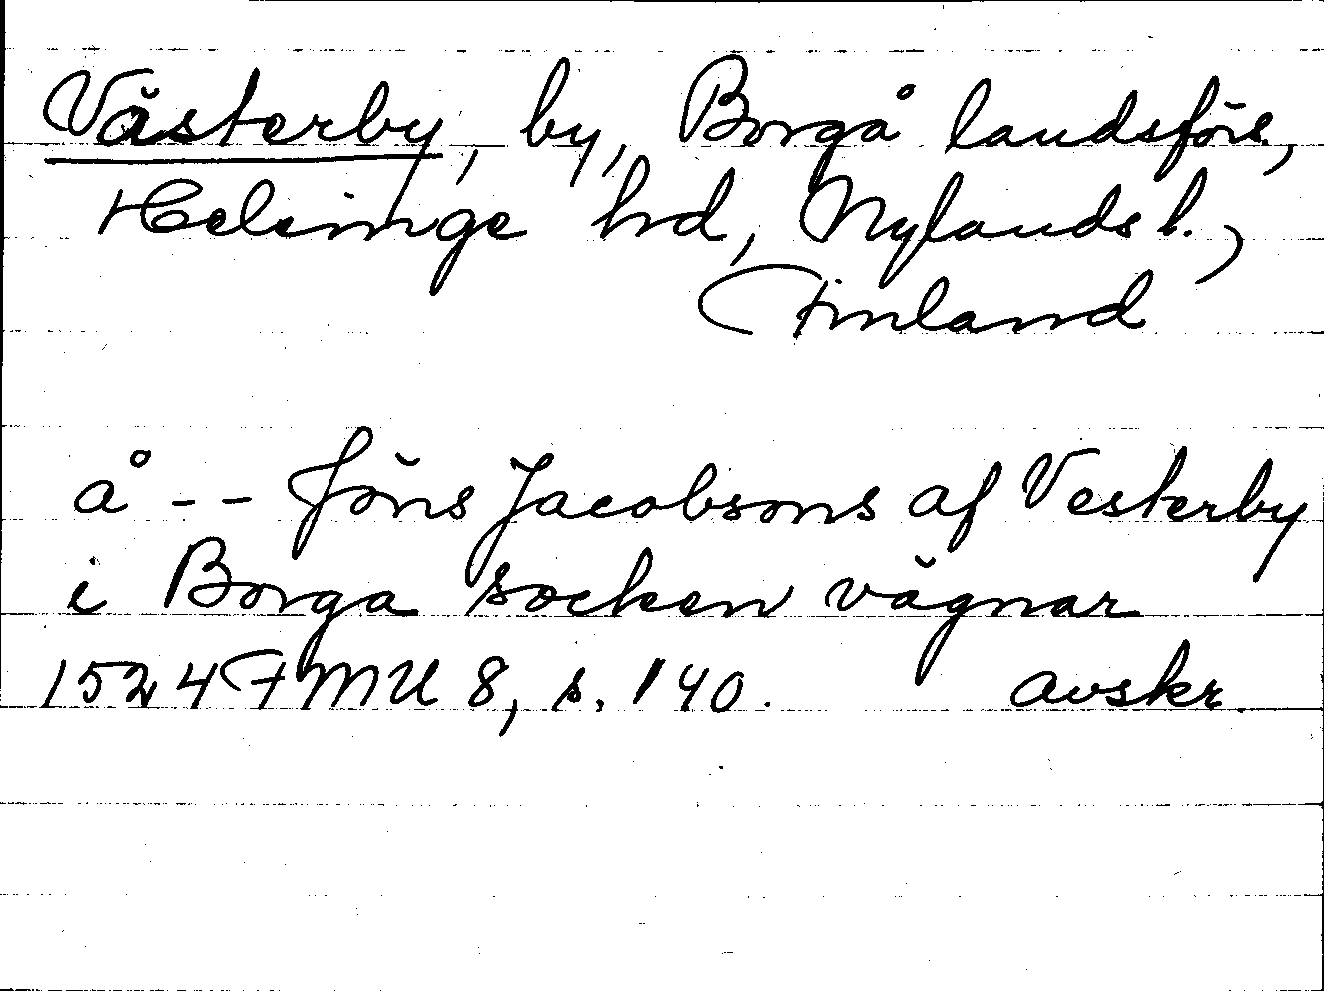 Västerby, by, Borgå landsförs.,
Helsinge hd, Nylands l.,
Finland
å -- Jöns Jacobsons af Vesterby
i Borga socken vägnar
1524 FMU 8, s. 140. avskr.